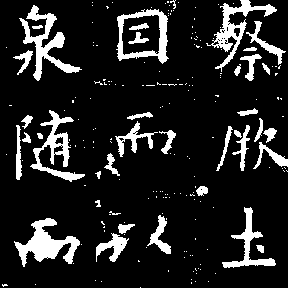 察厥土
因而以
泉随而